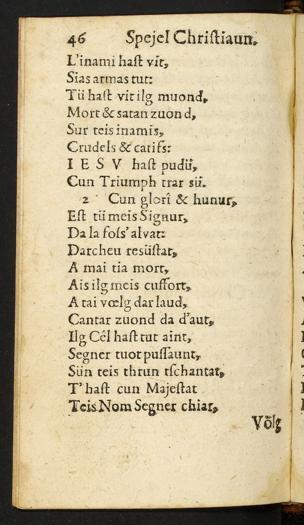 46 Spejel Christiaun.
L'inami hast vit,
Sias armas tut:
Tü hast vit ilg muond,
Mort & satan zuond,
Sur teis inamis,
Crudels & catifs:
IESV hast pudü,
Cun Triumph trar sü.
2 Cun glorî & hunur,
Est tü meis Signur,
Da la foss' alvat:
Darcheu resüstat,
A mai tia mort,
Ais ilg meis cuffort,
A tai vœlg dar laud,
Cantar zuond da d'aut,
Ilg Cêl hast tut aint,
Segner tuot pussaunt,
Sün teis thrun tschantat,
T'hast cun Majestat
Teis Nom Segner chiar,
Võlg